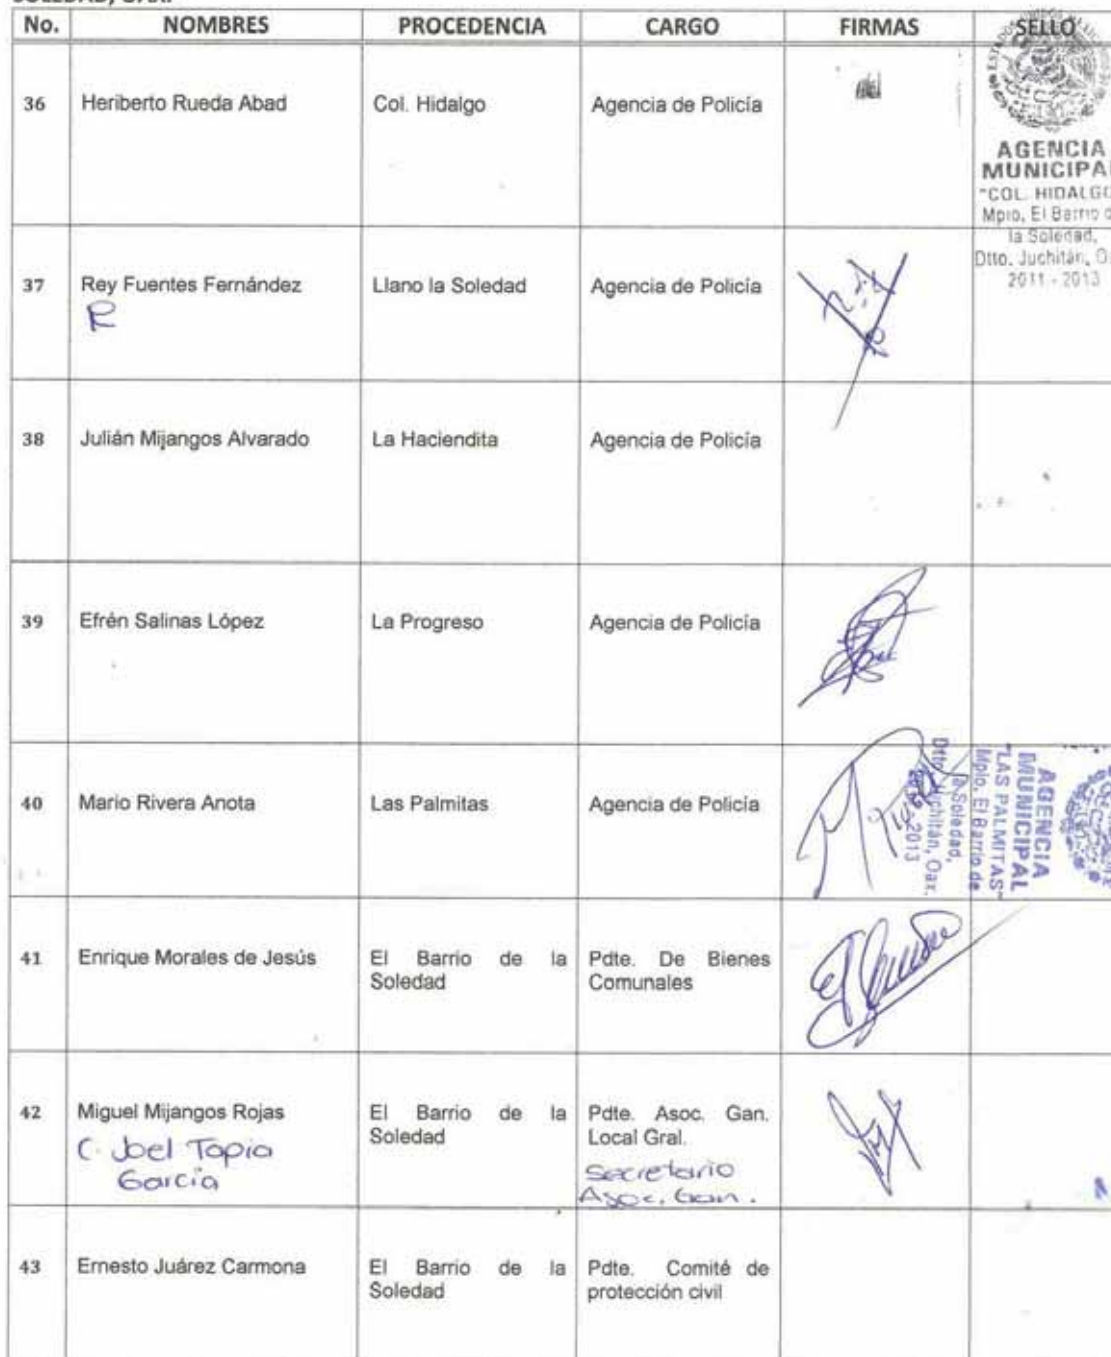 No. NOMBRES PROCEDENCIA CARGO FIRMAS SELLO
36 Heriberto Rueda Abad Col. Hidalgo Agencia de Policía
AGENCIA
MUNICIPAL
"COL. HIDALGO
Mpio. El Barrio d
la Soledad,
Dtto. Juchitán, O
2011 - 2013
37 Rey Fuentes Fernández Llano la Soledad Agencia de Policía
R
38 Julián Mijangos Alvarado La Haciendita Agencia de Policía
39 Efrén Salinas López La Progreso Agencia de Policía
40 Mario Rivera Anota Las Palmitas Agencia de Policía
AGENCIA
MUNICIPAL
"LAS PALMITAS"
Mpio. El Barrio de
la Soledad,
Dtto. Juchitán, Oax.
2013
41 Enrique Morales de Jesús El Barrio de la Pdte. De Bienes
Soledad Comunales
42 Miguel Mijangos Rojas El Barrio de la Pdte. Asoc. Gan.
Soledad Local Gral.
C. Joel Tapia Secretario
García Asoc. Gan.
43 Ernesto Juárez Carmona El Barrio de la Pdte. Comité de
Soledad protección civil